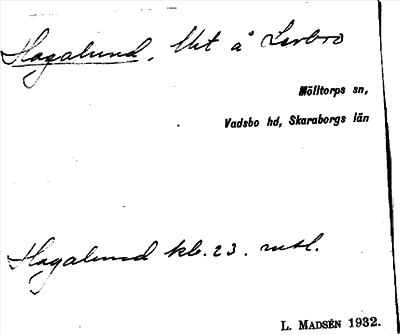 Hagalund, Utt å Lerbro
Mölltorps sn,
Vadsbo hd, Skaraborgs län
Hagalund kb. 23. mtl.
L. MADSÉN 1932.